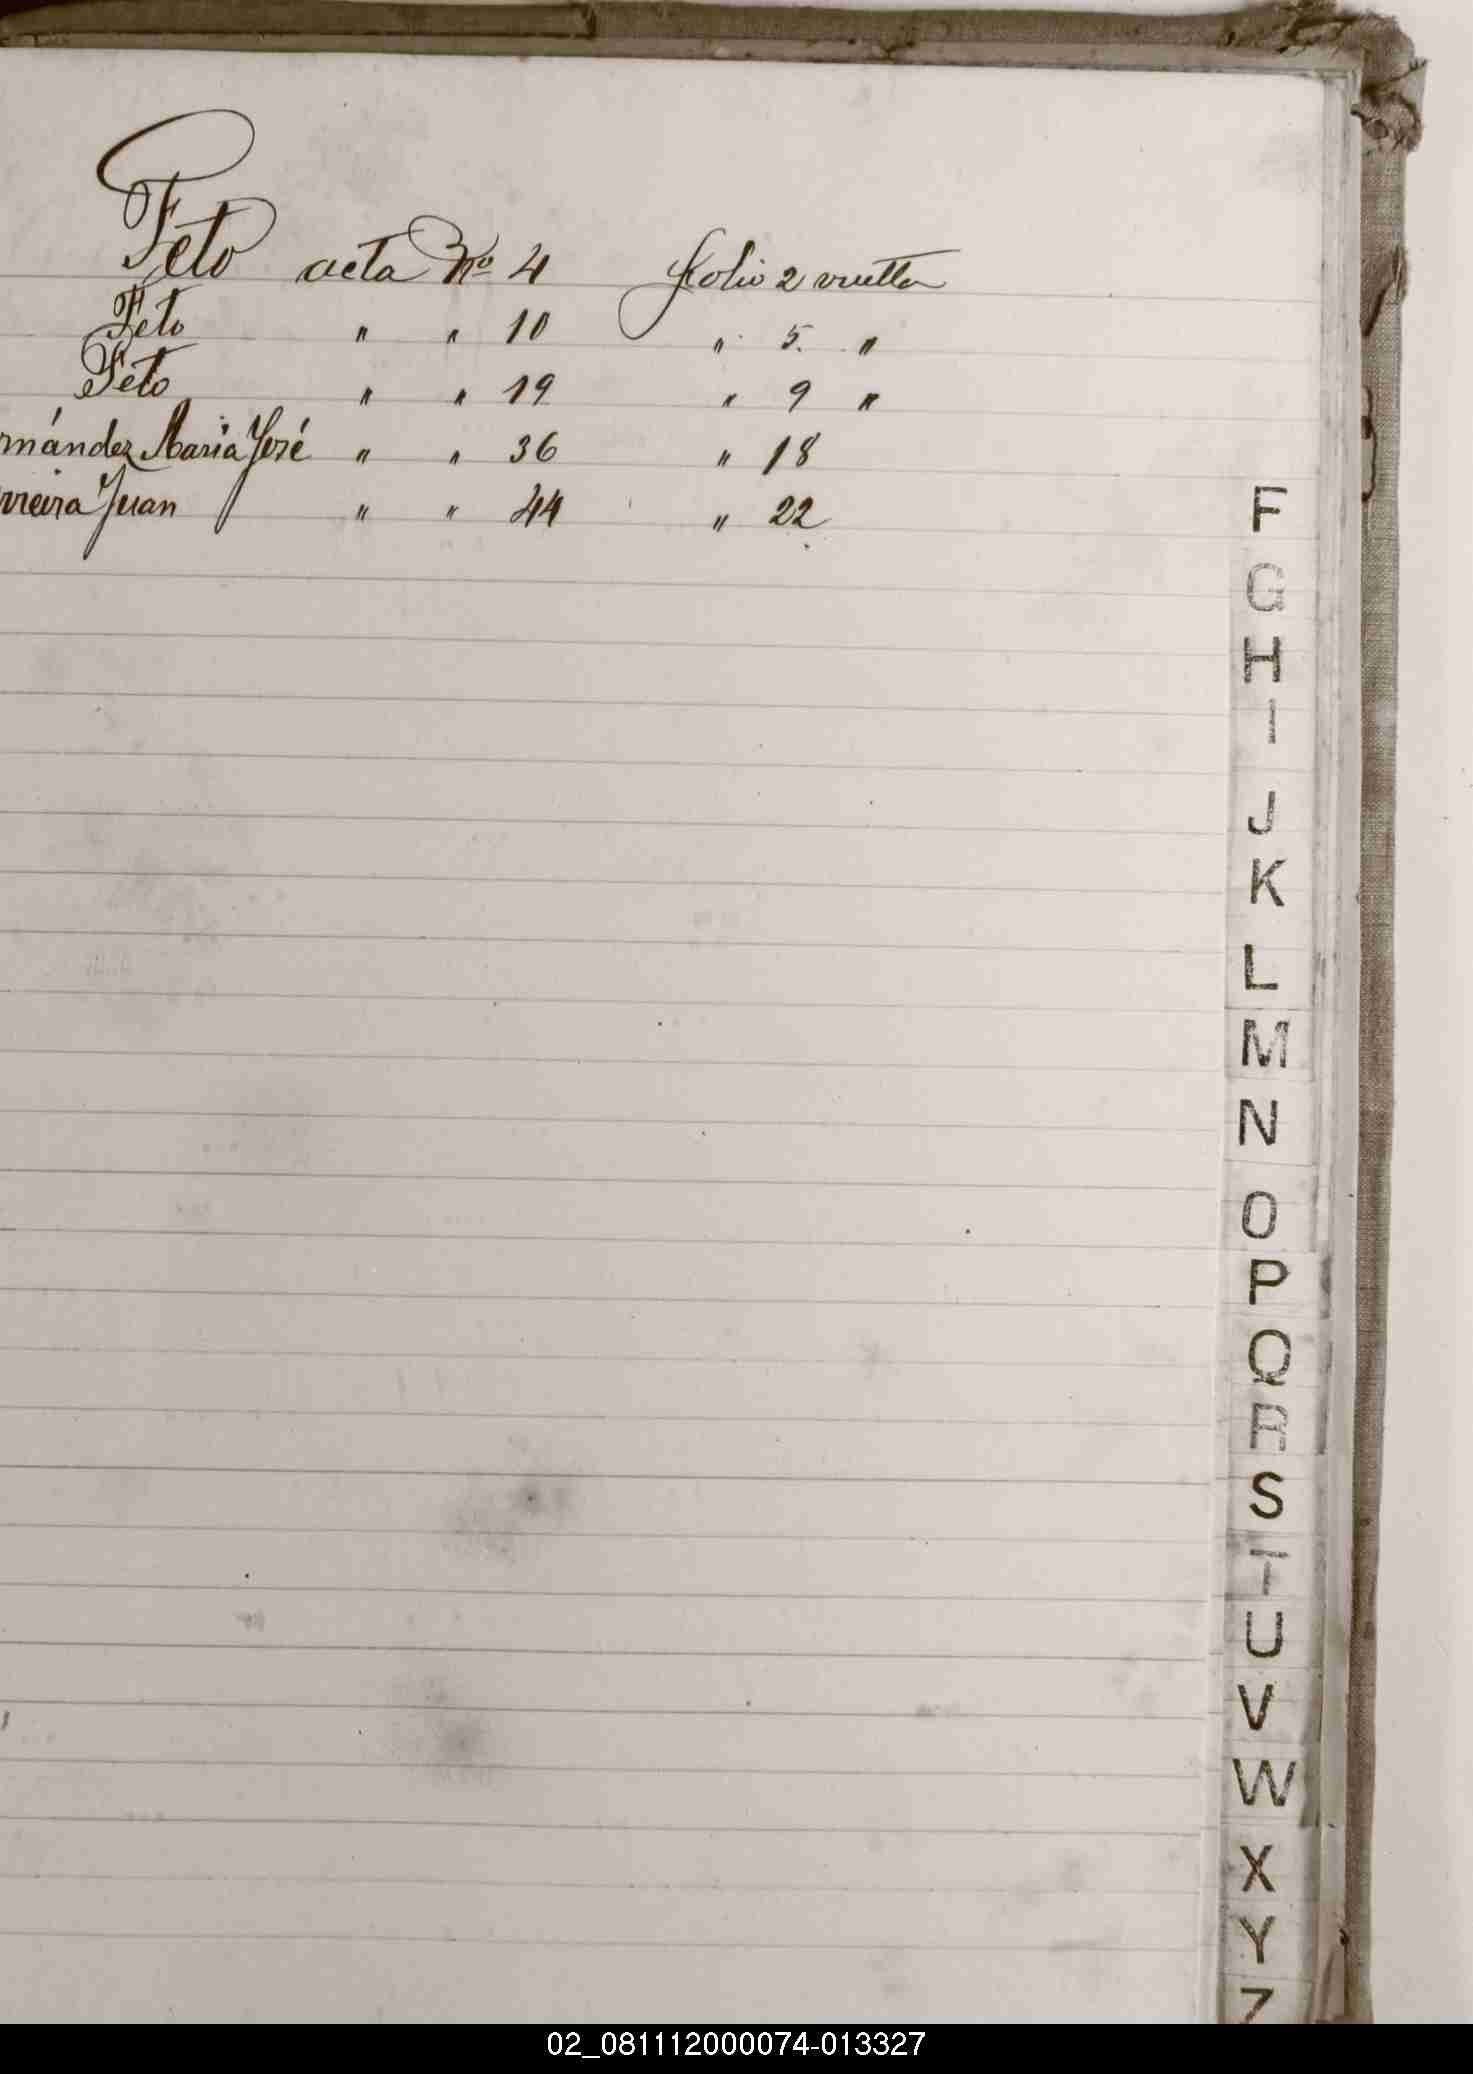 Feto acta Nº 4 folio 2 vuelta
Feto " " 10 " 5. "
Feto " " 19 " 9 "
rnández Maria José " " 36 " 18
rreira Juan " " 44 " 22
F
G
H
I
J
K
L
M
N
O
P
Q
R
S
T
U
V
W
X
Y
Z
02_081112000074-013327